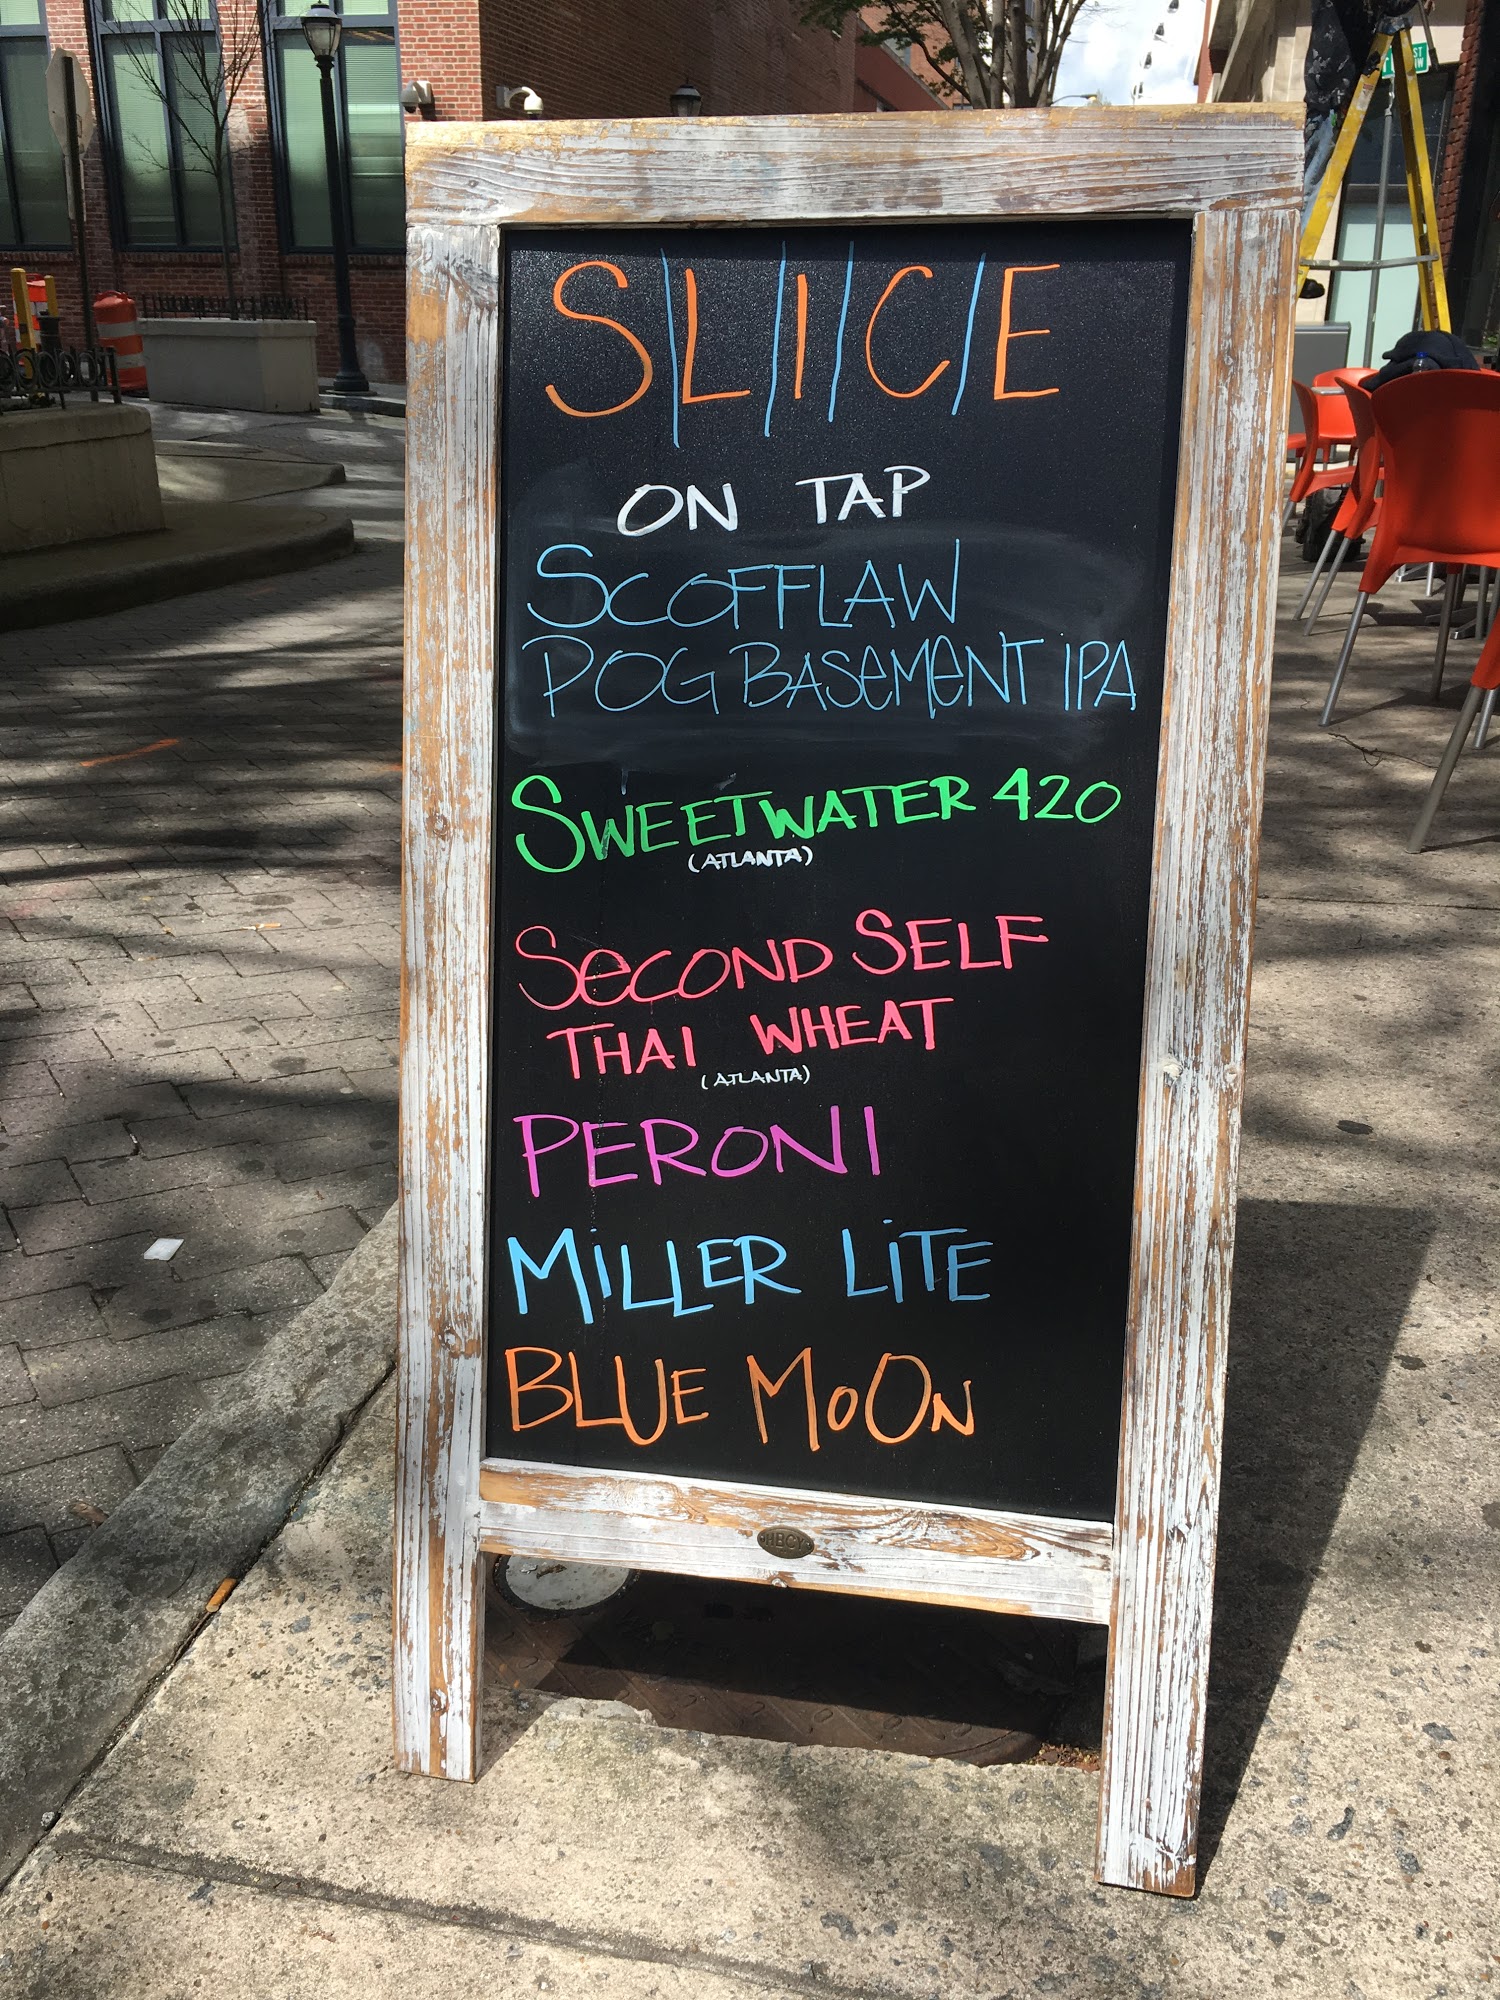 S|L|I|C|E
ON TAP
SCOFFLAW
POG BASEMENT IPA
SWEETWATER 420
(ATLANTA)
SECOND SELF
THAI WHEAT
(ATLANTA)
PERONI
MILLER LITE
BLUE MOON
HBCY
ST
NW